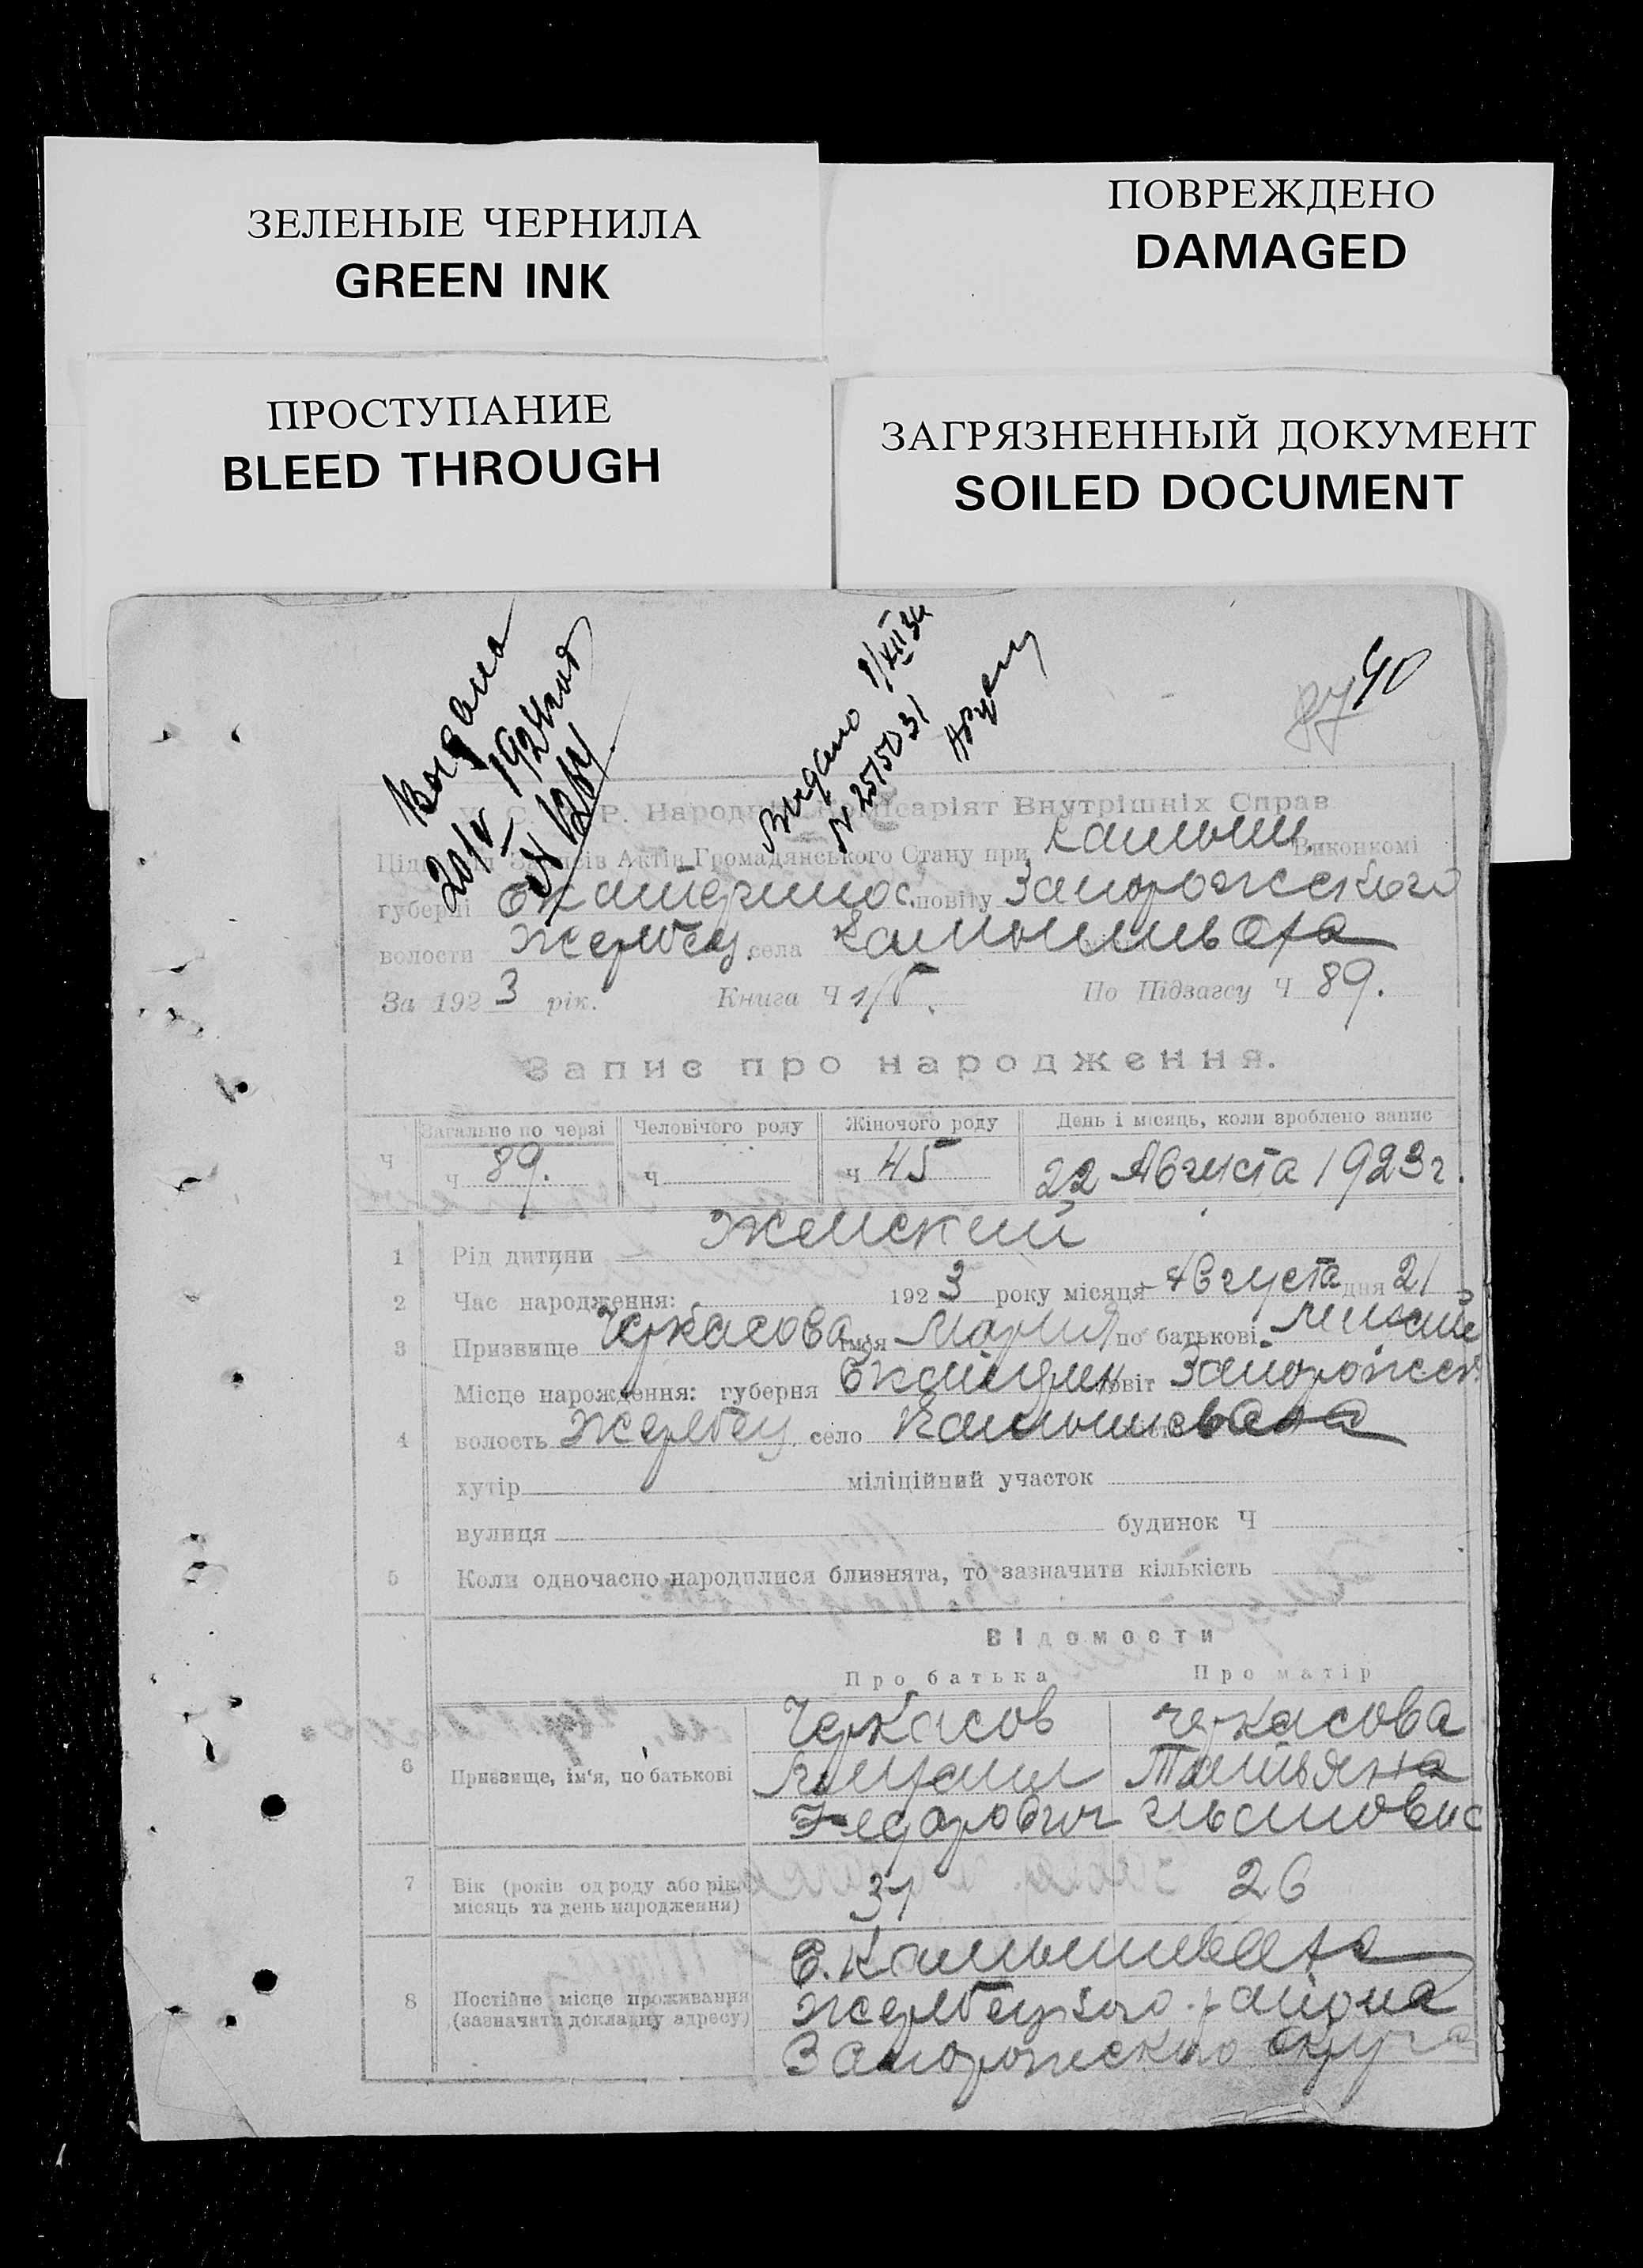 ЗЕЛЕНЫЕ ЧЕРНИЛА
GREEN INK
ПОВРЕЖДЕНО
DAMAGED
ПРОСТУПАНИЕ
BLEED THROUGH
ЗАГРЯЗНЕННЫЙ ДОКУМЕНТ
SOILED DOCUMENT
40
Видано
N 2575031
Р. Народній Комісаріят Внутрішніх Справ
Актів Громадянського Стану при Камыш. Виконкомі
губерні Екатеринос. повіту Запорожского
волости Жеребец. села Камышевата
За 1923 рік. Книга Ч 1/б. По Підзагсу Ч 89.
Запис про народження.
Загально по черзі Человічого роду Жіночого роду День і місяць, коли зроблено запис
Ч Ч 89. Ч Ч 45 22 Августа 1923 г.
1 Рід дитини Женский
2 Час народження: 1923 року місяця Августа дня 21
3 Призвище Черкасова ім'я Мария по батькові
Місце нарождення: губерня Екатерин повіт Запорожск
4 волость Жеребец. село Камышевата
хутір міліційний участок
вулиця будинок Ч
5 Коли одночасно народилися близнята, то зазначити кількість
Відомости
Про батька Про матір
Черкасов Черкасова
6 Призвище, ім'я, по батькові Михаил Татьяна
Федорович
7 Вік (років од роду або рік, місяць та день народження) 31 26
С. Камышевата
8 Постійне місце проживання (зазначити докладну адресу) Жеребецкого района
Запорожского округа